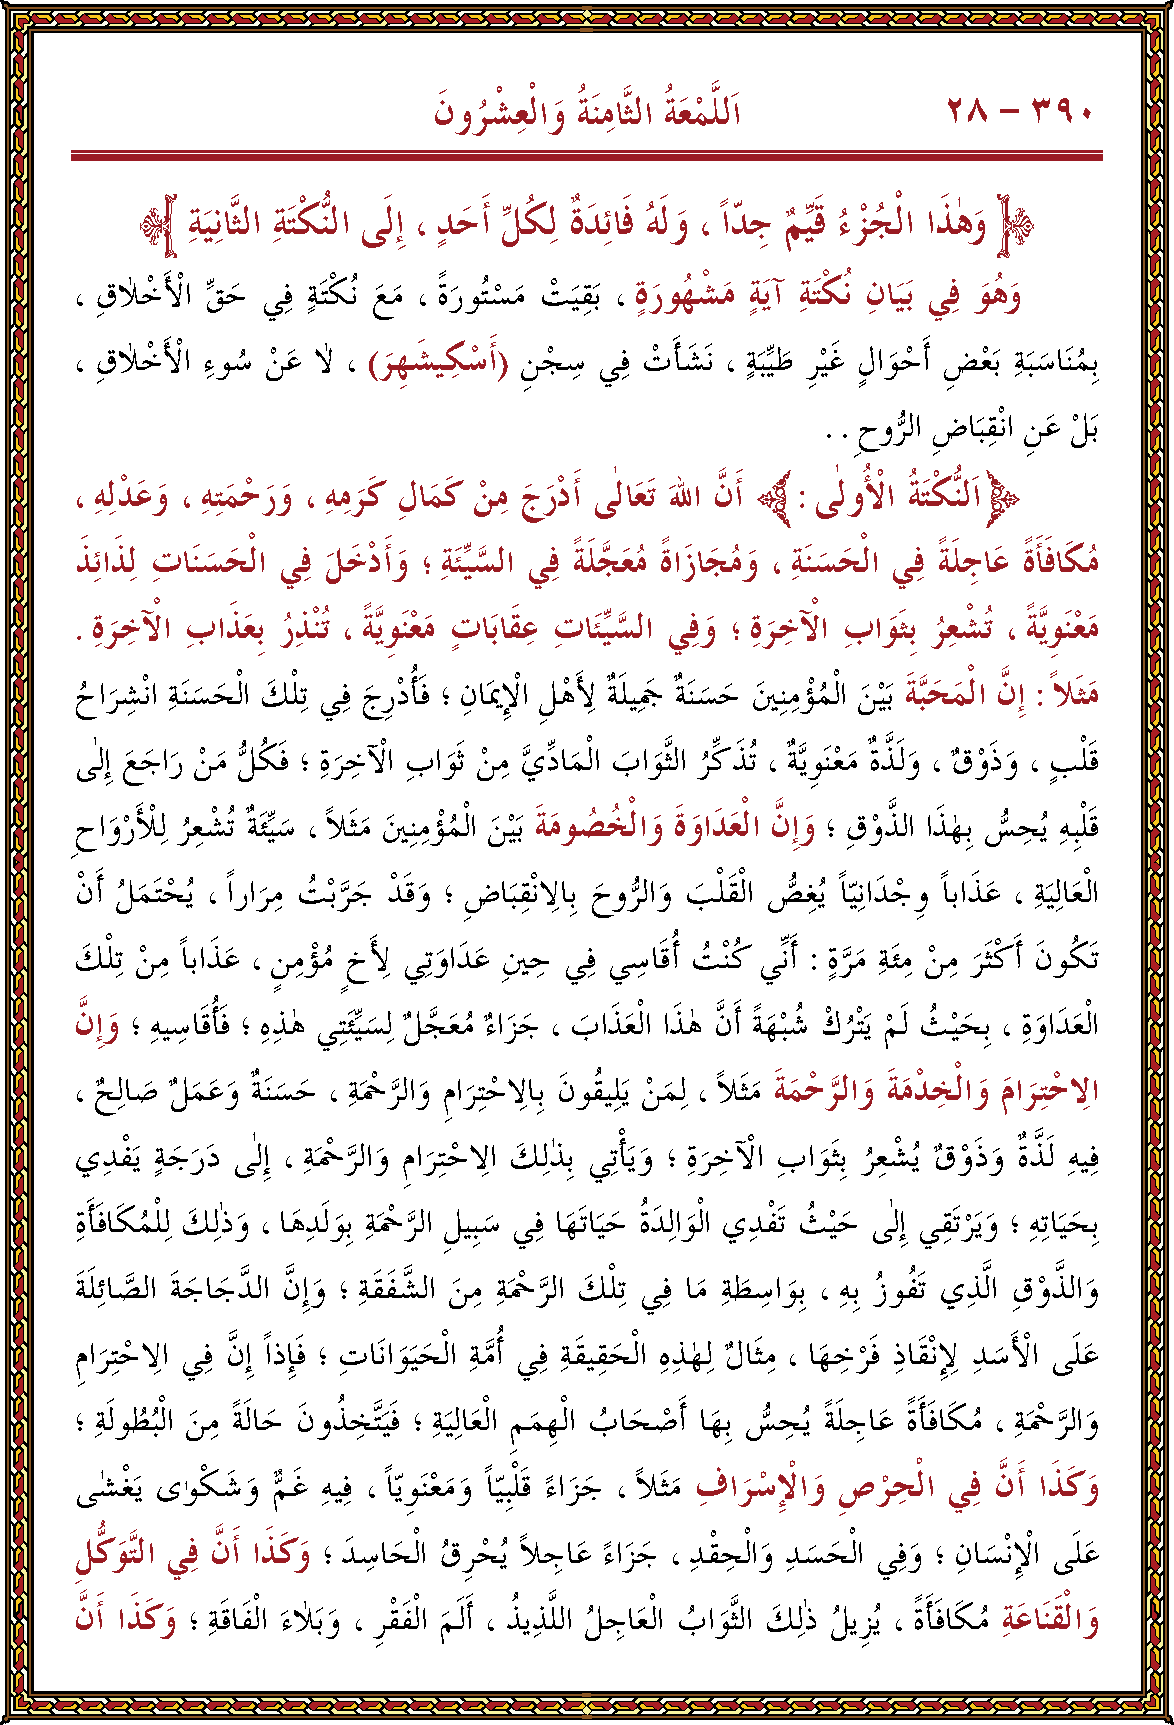 ٣٩٠ – ٢٨ اَللَّمْعَةُ الثَّامِنَةُ وَالْعِشْرُونَ
﴿وَهٰذَا الْجُزْءُ قَيِّمٌ جِدّاً ، وَلَهُ فَائِدَةٌ لِكُلِّ أَحَدٍ ، إِلَى النُّكْتَةِ الثَّانِيَةِ﴾
وَهُوَ فِي بَيَانِ نُكْتَةِ آيَةٍ مَشْهُورَةٍ ، بَقِيَتْ مَسْتُورَةً ، مَعَ نُكْتَةٍ فِي حَقِّ الْأَخْلَاقِ ،
بِمُنَاسَبَةِ بَعْضِ أَحْوَالٍ غَيْرِ طَيِّبَةٍ ، نَشَأَتْ فِي سِجْنِ (أَسْكِيشَهِرَ) ، لَا عَنْ سُوءِ الْأَخْلَاقِ ،
بَلْ عَنِ انْقِبَاضِ الرُّوحِ . .
﴿اَلنُّكْتَةُ الْأُولٰى :﴾ أَنَّ اللهَ تَعَالٰى أَدْرَجَ مِنْ كَمَالِ كَرَمِهِ ، وَرَحْمَتِهِ ، وَعَدْلِهِ ،
مُكَافَأَةً عَاجِلَةً فِي الْحَسَنَةِ ، وَمُجَازَاةً مُعَجَّلَةً فِي السَّيِّئَةِ ؛ وَأَدْخَلَ فِي الْحَسَنَاتِ لَذَائِذَ
مَعْنَوِيَّةً ، تُشْعِرُ بِثَوَابِ الْآخِرَةِ ؛ وَفِي السَّيِّئَاتِ عِقَابَاتٍ مَعْنَوِيَّةً ، تُنْذِرُ بِعَذَابِ الْآخِرَةِ .
مَثَلاً : إِنَّ الْمَحَبَّةَ بَيْنَ الْمُؤْمِنِينَ حَسَنَةٌ جَمِيلَةٌ لِأَهْلِ الْإِيمَانِ ؛ فَأُدْرِجَ فِي تِلْكَ الْحَسَنَةِ انْشِرَاحُ
قَلْبٍ ، وَذَوْقٌ ، وَلَذَّةٌ مَعْنَوِيَّةٌ ، تُذَكِّرُ الثَّوَابَ الْمَادِّيَّ مِنْ ثَوَابِ الْآخِرَةِ ؛ فَكُلُّ مَنْ رَاجَعَ إِلٰى
قَلْبِهِ يُحِسُّ بِهٰذَا الذَّوْقِ ؛ وَإِنَّ الْعَدَاوَةَ وَالْخُصُومَةَ بَيْنَ الْمُؤْمِنِينَ مَثَلاً ، سَيِّئَةٌ تُشْعِرُ لِلْأَرْوَاحِ
الْعَالِيَةِ ، عَذَاباً وِجْدَانِيّاً يُغِصُّ الْقَلْبَ وَالرُّوحَ بِالِانْقِبَاضِ ؛ وَقَدْ جَرَّبْتُ مِرَاراً ، يُحْتَمَلُ أَنْ
تَكُونَ أَكْثَرَ مِنْ مِئَةِ مَرَّةٍ : أَنِّي كُنْتُ أُقَاسِي فِي حِينِ عَدَاوَتِي لِأَخٍ مُؤْمِنٍ ، عَذَاباً مِنْ تِلْكَ
الْعَدَاوَةِ ، بِحَيْثُ لَمْ يَتْرُكْ شُبْهَةً أَنَّ هٰذَا الْعَذَابَ ، جَزَاءٌ مُعَجَّلٌ لِسَيِّئَتِي هٰذِهِ ؛ فَأُقَاسِيهِ ؛ وَإِنَّ
الِاحْتِرَامَ وَالْخِدْمَةَ وَالرَّحْمَةَ مَثَلاً ، لِمَنْ يَلِيقُونَ بِالِاحْتِرَامِ وَالرَّحْمَةِ ، حَسَنَةٌ وَعَمَلٌ صَالِحٌ ،
فِيهِ لَذَّةٌ وَذَوْقٌ يُشْعِرُ بِثَوَابِ الْآخِرَةِ ؛ وَيَأْتِي بِذٰلِكَ الِاحْتِرَامِ وَالرَّحْمَةِ ، إِلٰى دَرَجَةٍ يَفْدِي
بِحَيَاتِهِ ؛ وَيَرْتَقِي إِلٰى حَيْثُ تَفْدِي الْوَالِدَةُ حَيَاتَهَا فِي سَبِيلِ الرَّحْمَةِ بِوَلَدِهَا ، وَذٰلِكَ لِلْمُكَافَأَةِ
وَالذَّوْقِ الَّذِي تَفُوزُ بِهِ ، بِوَاسِطَةِ مَا فِي تِلْكَ الرَّحْمَةِ مِنَ الشَّفَقَةِ ؛ وَإِنَّ الدَّجَاجَةَ الصَّائِلَةَ
عَلَى الْأَسَدِ لِإِنْقَاذِ فَرْخِهَا ، مِثَالٌ لِهٰذِهِ الْحَقِيقَةِ فِي أُمَّةِ الْحَيَوَانَاتِ ؛ فَإِذاً إِنَّ فِي الِاحْتِرَامِ
وَالرَّحْمَةِ ، مُكَافَأَةً عَاجِلَةً يُحِسُّ بِهَا أَصْحَابُ الْهِمَمِ الْعَالِيَةِ ؛ فَيَتَّخِذُونَ حَالَةً مِنَ الْبُطُولَةِ ؛
وَكَذَا أَنَّ فِي الْحِرْصِ وَالْإِسْرَافِ مَثَلاً ، جَزَاءً قَلْبِيّاً وَمَعْنَوِيّاً ، فِيهِ غَمٌّ وَشَكْوٰى يَغْشٰى
عَلَى الْإِنْسَانِ ؛ وَفِي الْحَسَدِ وَالْحِقْدِ ، جَزَاءً عَاجِلاً يُحْرِقُ الْحَاسِدَ ؛ وَكَذَا أَنَّ فِي التَّوَكُّلِ
وَالْقَنَاعَةِ مُكَافَأَةً ، يُزِيلُ ذٰلِكَ الثَّوَابُ الْعَاجِلُ اللَّذِيذُ ، أَلَمَ الْفَقْرِ ، وَبَلَاءَ الْفَاقَةِ ؛ وَكَذَا أَنَّ